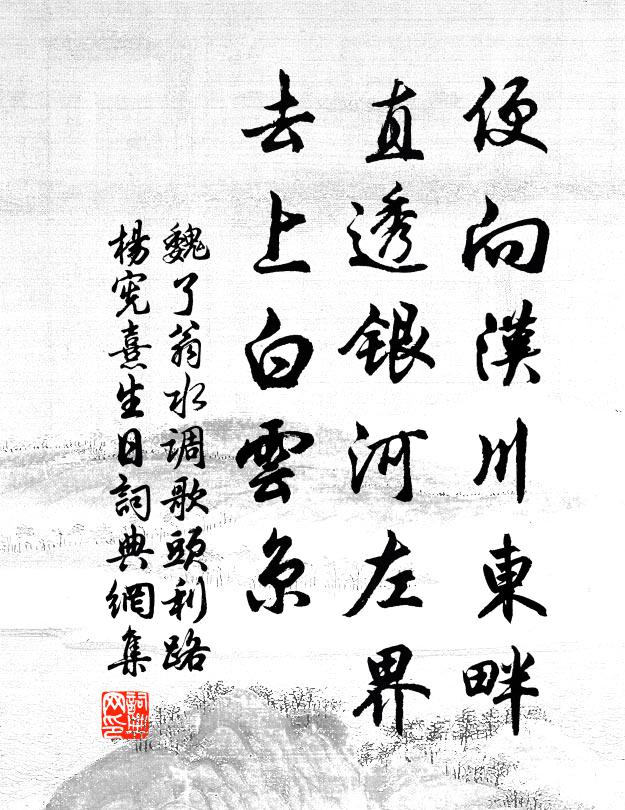 便向漢川東畔
直透銀河左界
去上白雲京
魏了翁水调歌頭利路
楊宪熹生日詞典網集